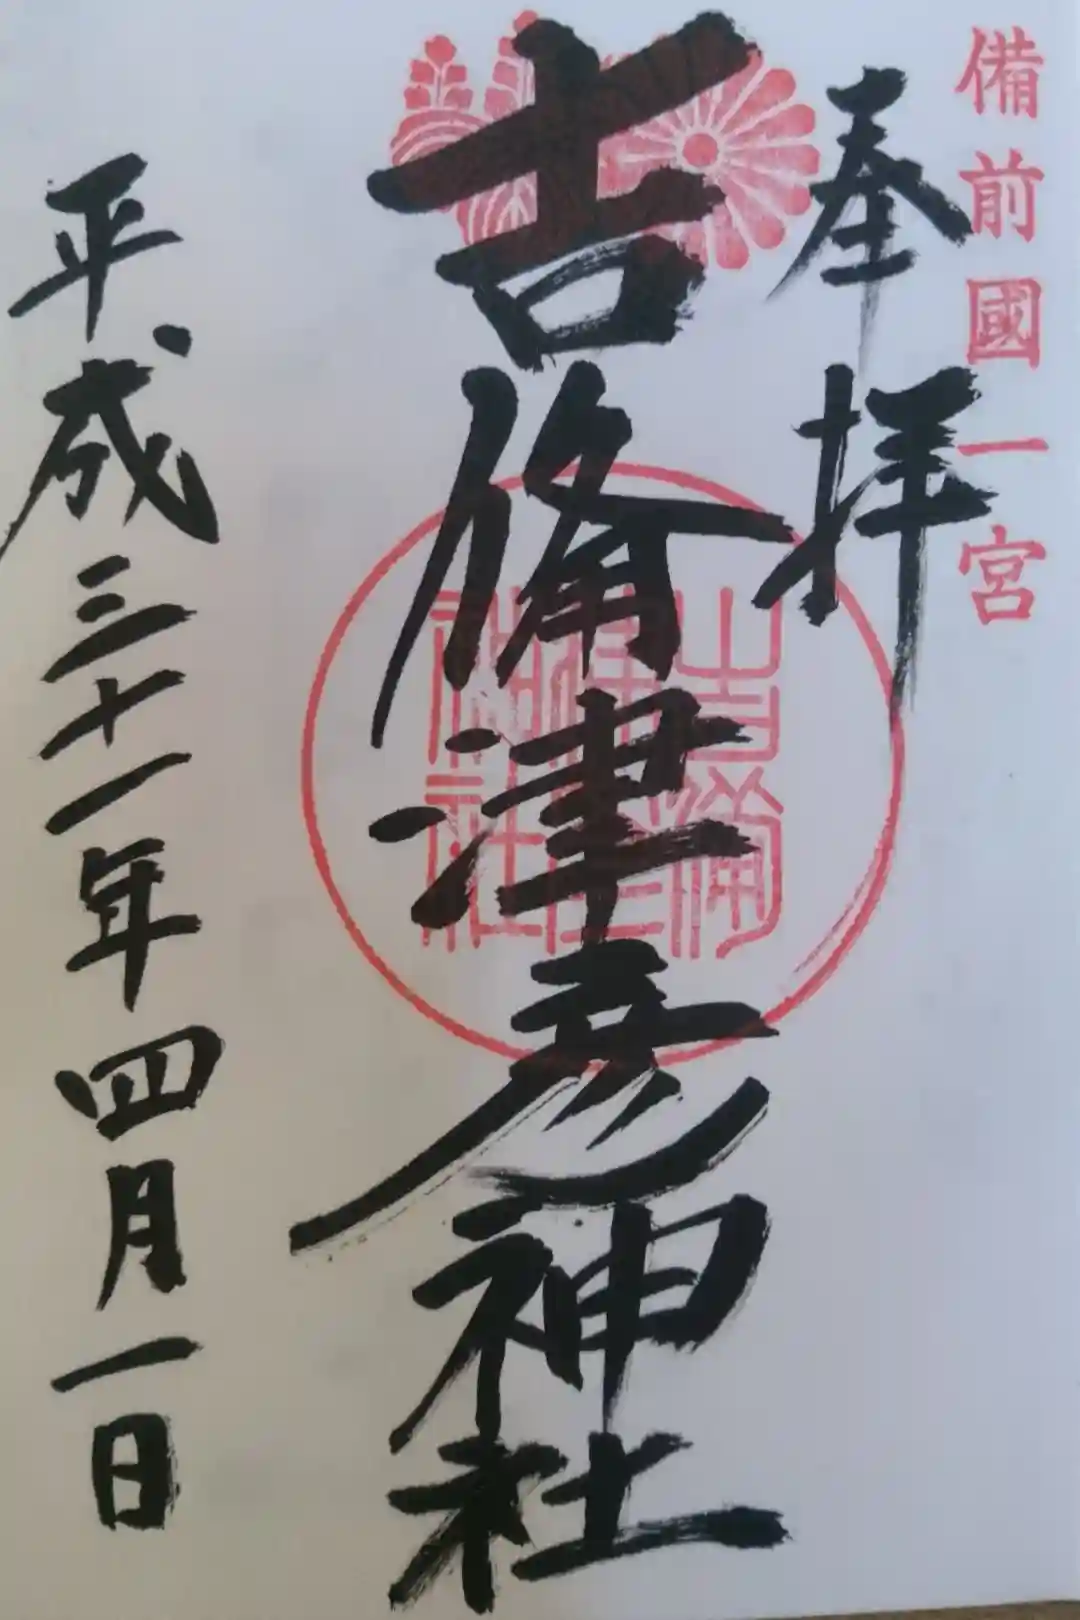 備前國一宮
奉拝
吉備津彦神社
吉備津彦神社
平成三十一年四月一日